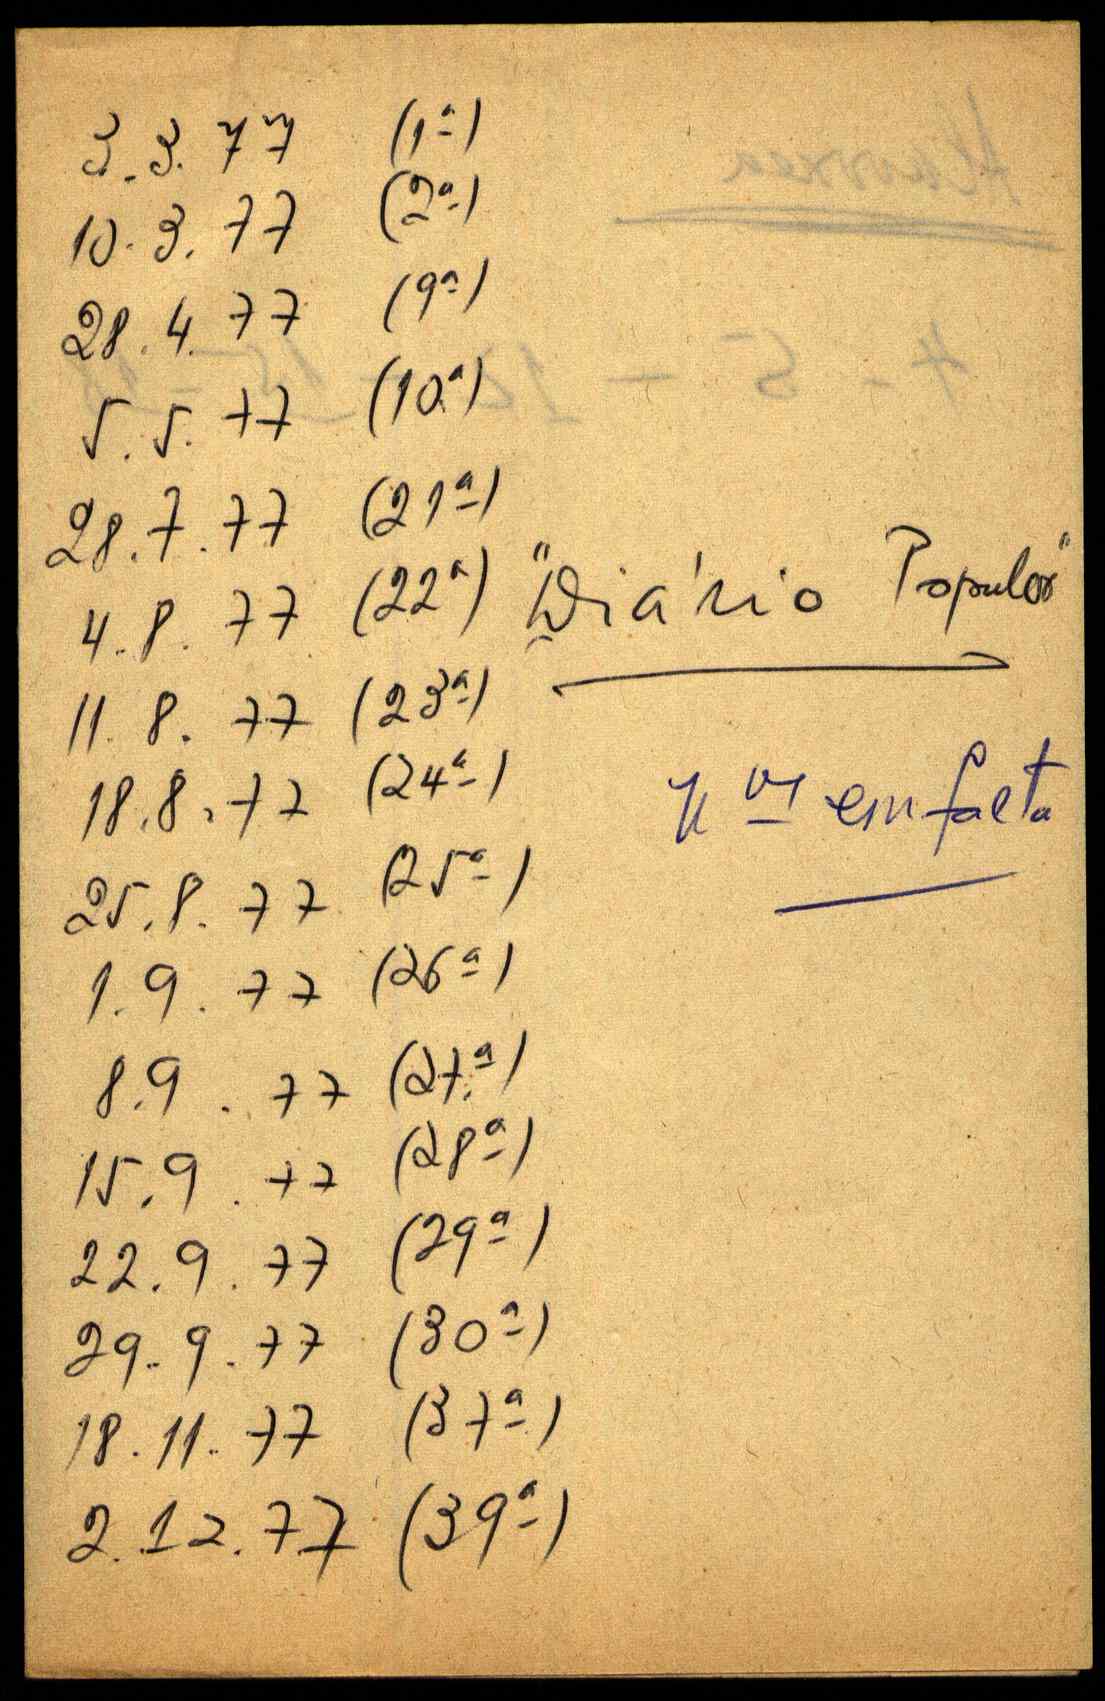 3.3.77 (1ª)
10.3.77 (2ª)
28.4.77 (9ª)
5.5.77 (10ª)
28.7.77 (21ª)
4.8.77 (22ª) "Diário Popular"
11.8.77 (23ª)
18.8.77 (24ª)
nos em falta
25.8.77 (25ª)
1.9.77 (26ª)
8.9.77 (27ª)
15.9.77 (28ª)
22.9.77 (29ª)
29.9.77 (30ª)
18.11.77 (37ª)
2.12.77 (39ª)